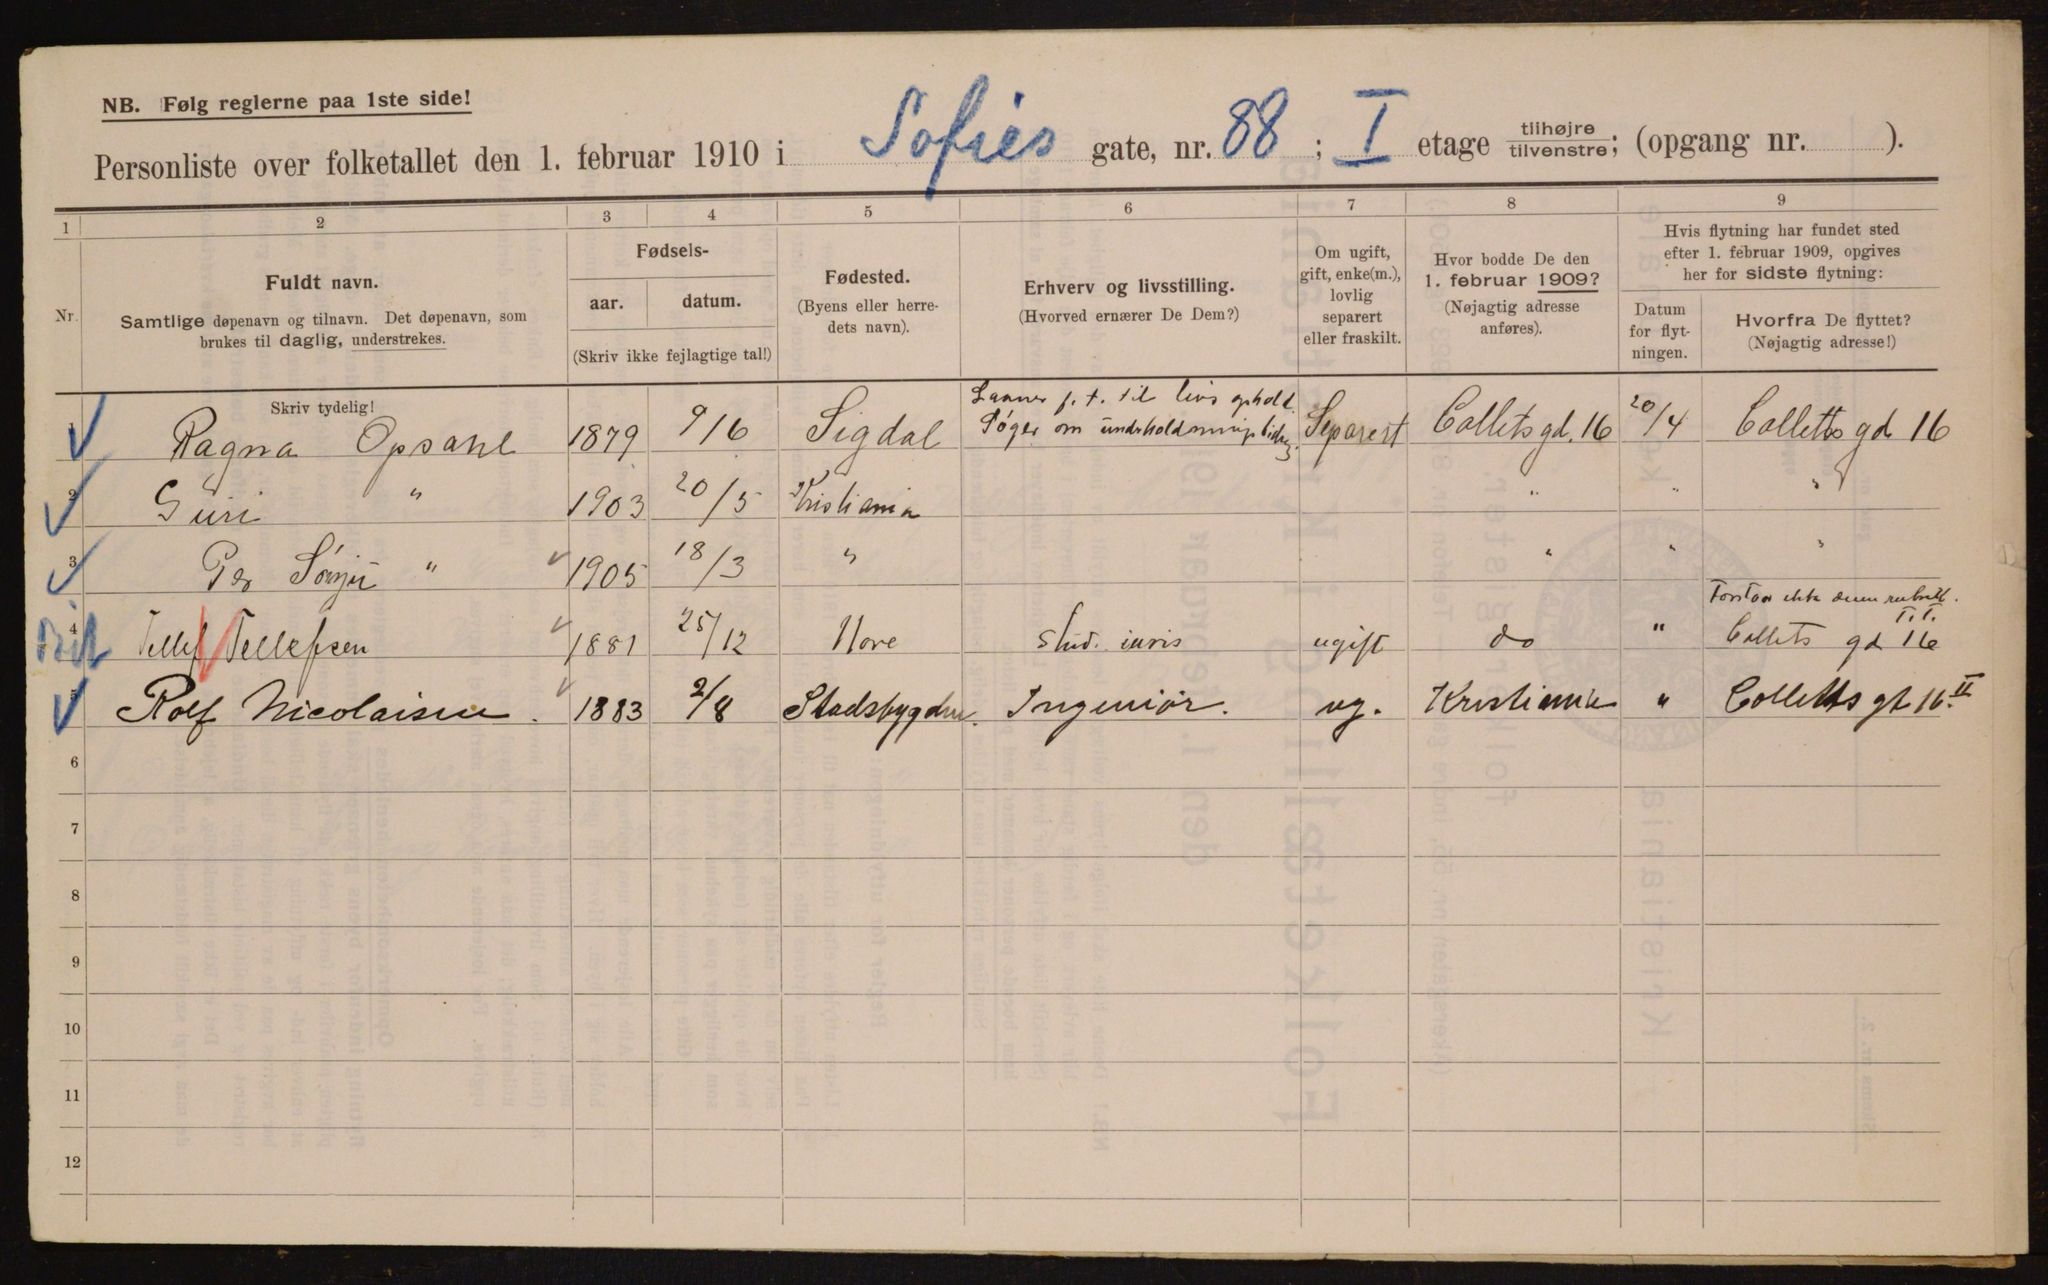 NB. Følg reglerne paa 1ste side!
Personliste over folketallet den 1. februar 1910 i Sofies gate, nr. 88 ; I etage tilhøjre tilvenstre; (opgang nr. ).
1 2 3 4 5 6 7 8 9
Nr.
Fuldt navn.
Samtlige døpenavn og tilnavn. Det døpenavn, som
brukes til daglig, understrekes.
Fødsels-
aar. datum.
(Skriv ikke fejlagtige tal!)
Fødested.
(Byens eller herre-
dets navn).
Erhverv og livsstilling.
(Hvorved ernærer De Dem?)
Om ugift,
gift, enke(m.),
lovlig
separert
eller fraskilt.
Hvor bodde De den
1. februar 1909?
(Nøjagtig adresse
anføres).
Hvis flytning har fundet sted
efter 1. februar 1909, opgives
her for sidste flytning:
Datum
for flyt-
ningen.
Hvorfra De flyttet?
(Nøjagtig adresse!)
Skriv tydelig!
Laaner p. t. til livsophold.
1 Ragna Opsahl 1879 9/6 Sigdal Søger om underholdningsbidrag. Separert Collets gd. 16 20/4 Colletts gd 16
2 Guri " 1903 20/5 Kristiania " " "
3 Per " 1905 18/3 " " " "
Forstaar ikke denne rubrikk.
T.T.
4 Tellef Tellefsen 1881 25/12 Nore stud. iuris ugift do " Collets gd 16
5 Rolf Nicolaisen. 1883 2/8 Stadsbygden. Ingeniør. ug. Kristiania " Colletts gt 16. II
6
7
8
9
10
11
12